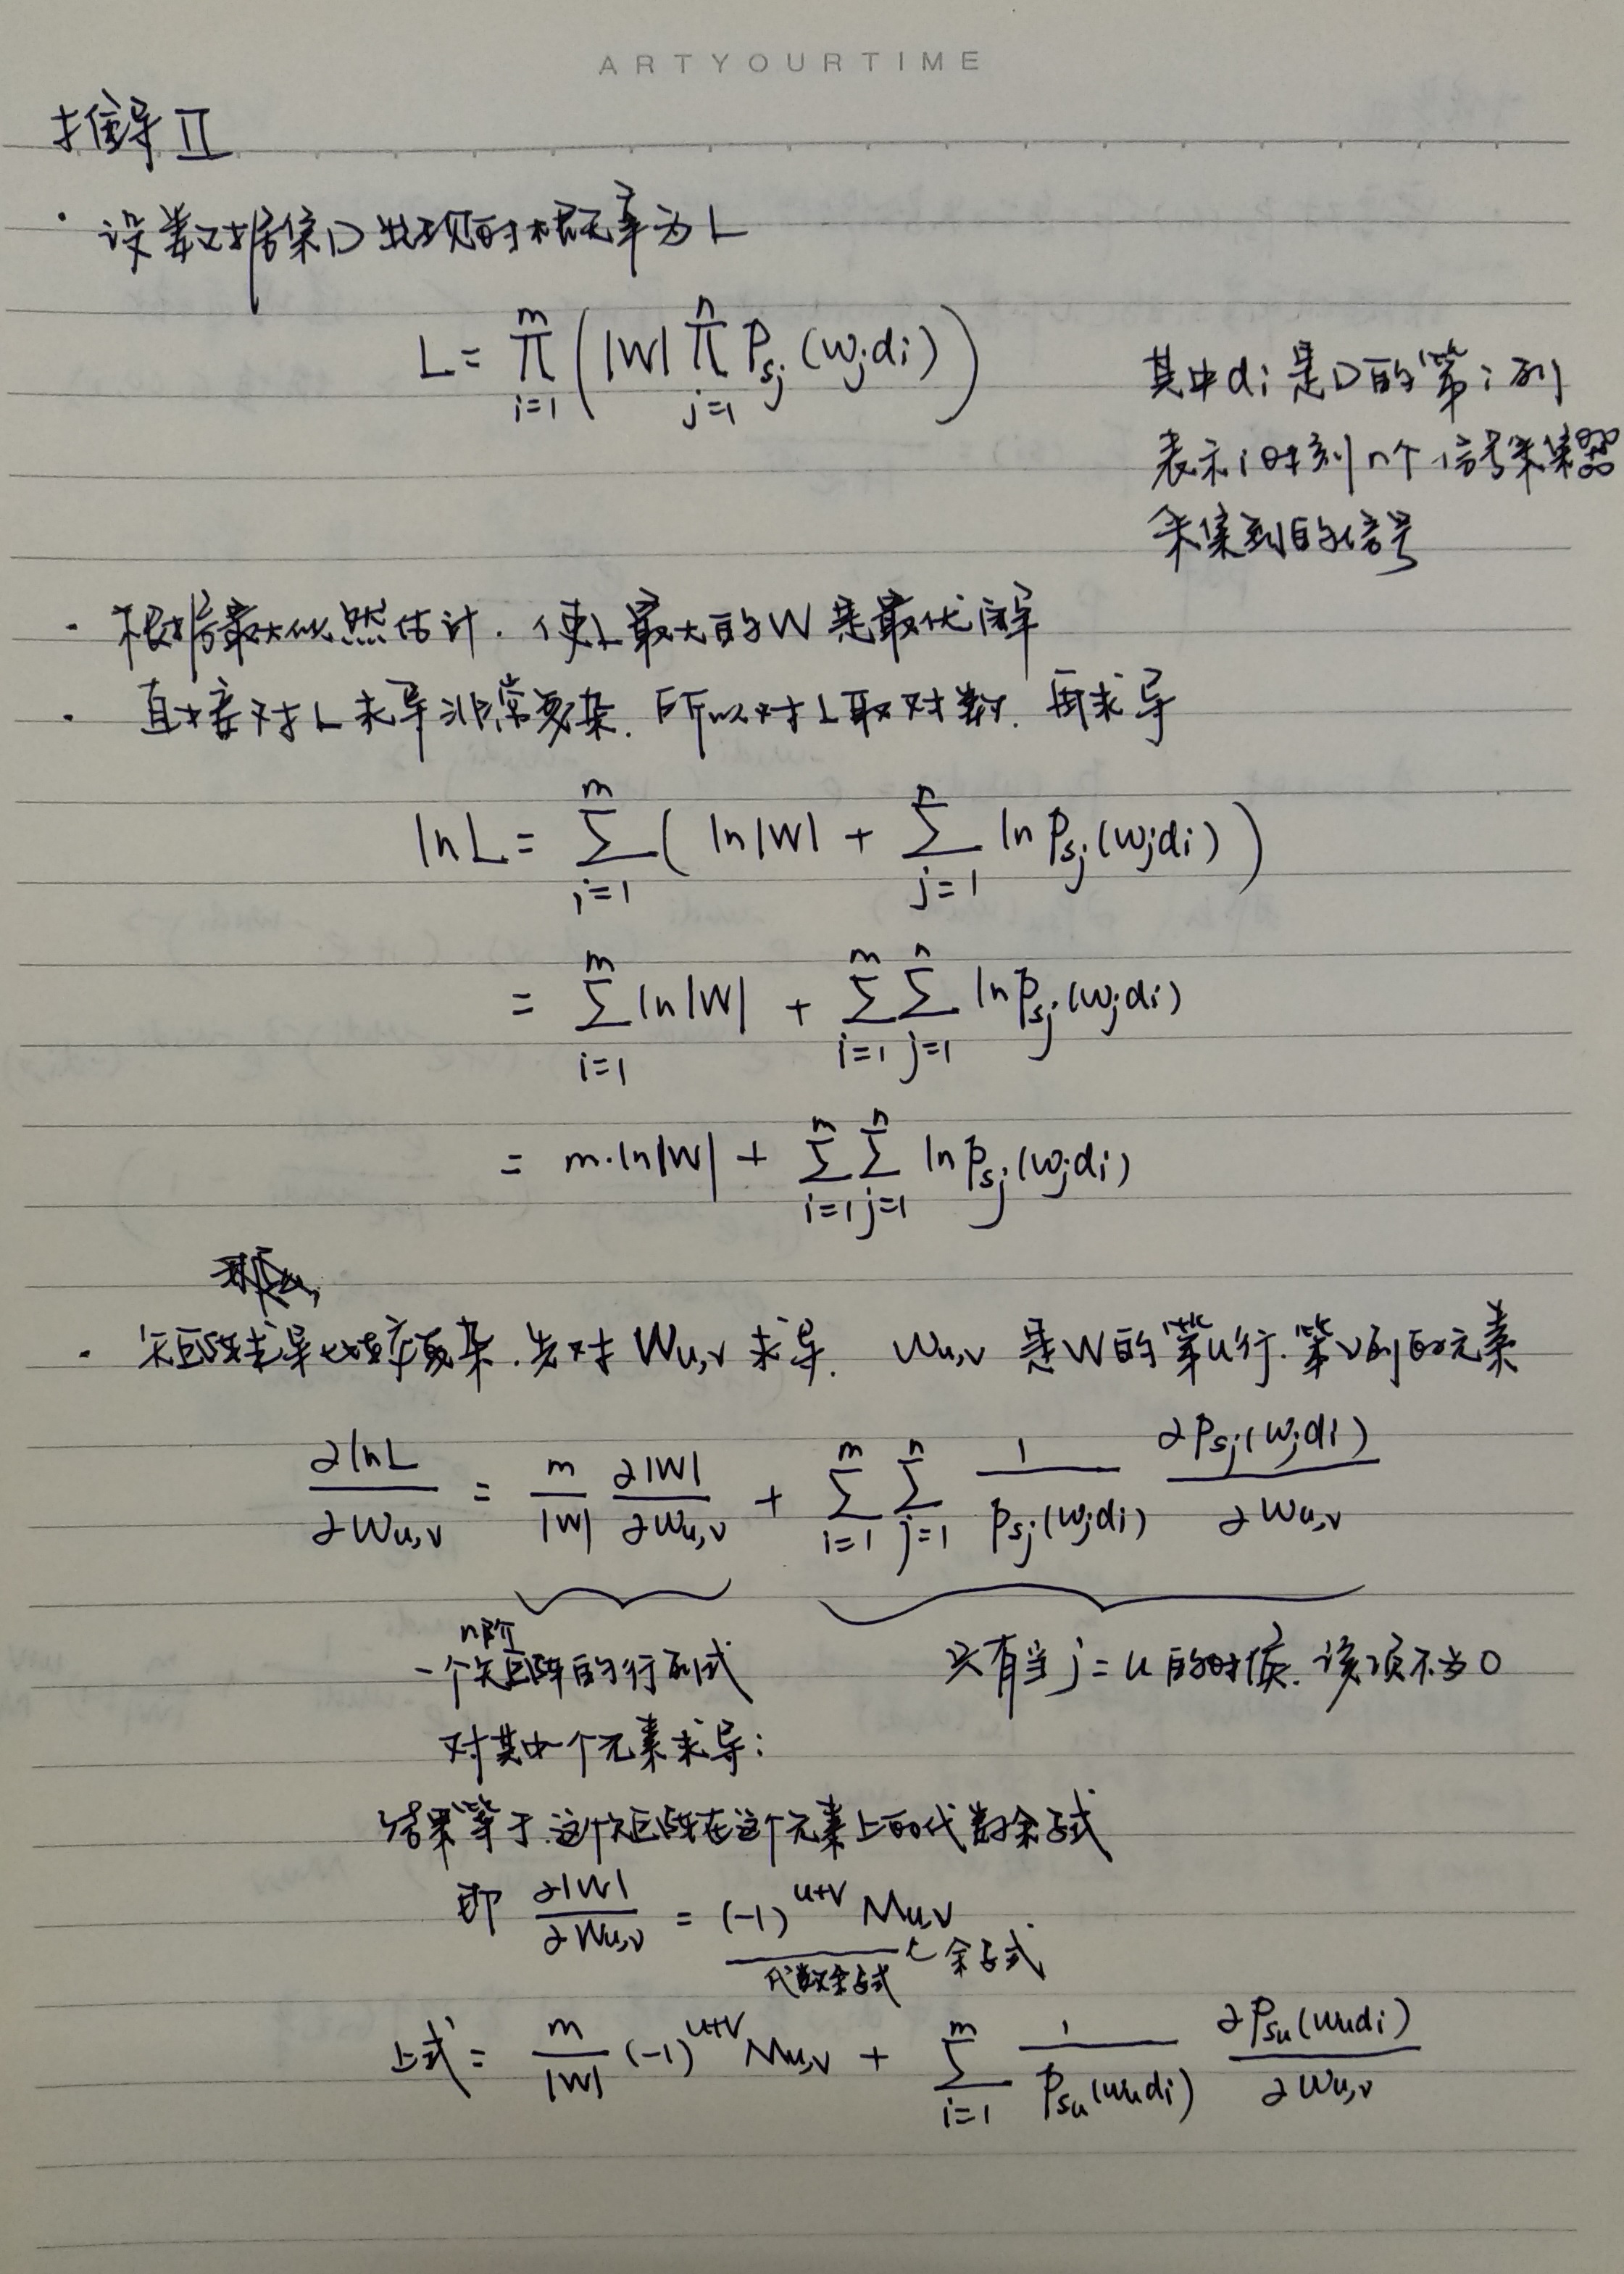 ARTYOURTIME
推导 II
· 设数据集D出现的概率为L
L = ∏_{i=1}^{m} ( |W| ∏_{j=1}^{n} P_{sj}(w_j d_i) )
其中di是D的第i列
表示i时刻n个信号采集器
采集到的信号
· 根据最大似然估计. 使L最大的W是最优解
· 直接对L求导非常复杂. 所以对L取对数. 再求导
lnL = ∑_{i=1}^{m} ( ln|W| + ∑_{j=1}^{n} ln P_{sj}(w_j d_i) )
= ∑_{i=1}^{m} ln|W| + ∑_{i=1}^{m} ∑_{j=1}^{n} ln P_{sj}(w_j d_i)
= m·ln|W| + ∑_{i=1}^{m} ∑_{j=1}^{n} ln P_{sj}(w_j d_i)
· 矩阵求导比较复杂. 先对 W_{u,v} 求导. W_{u,v} 是W的第u行. 第v列的元素
∂lnL/∂W_{u,v} = m/|W| ∂|W|/∂W_{u,v} + ∑_{i=1}^{m} ∑_{j=1}^{n} 1/P_{sj}(w_j d_i) ∂P_{sj}(w_j d_i)/∂W_{u,v}
n阶
一个矩阵的行列式
只有当 j = u 的时候. 该项不为0
对其中一个元素求导:
结果等于这个矩阵在这个元素上的代数余子式
即 ∂|W|/∂W_{u,v} = (-1)^{u+v} M_{u,v}
余子式
代数余子式
上式 = m/|W| (-1)^{u+v} M_{u,v} + ∑_{i=1}^{m} 1/P_{su}(w_u d_i) ∂P_{su}(w_u d_i)/∂W_{u,v}